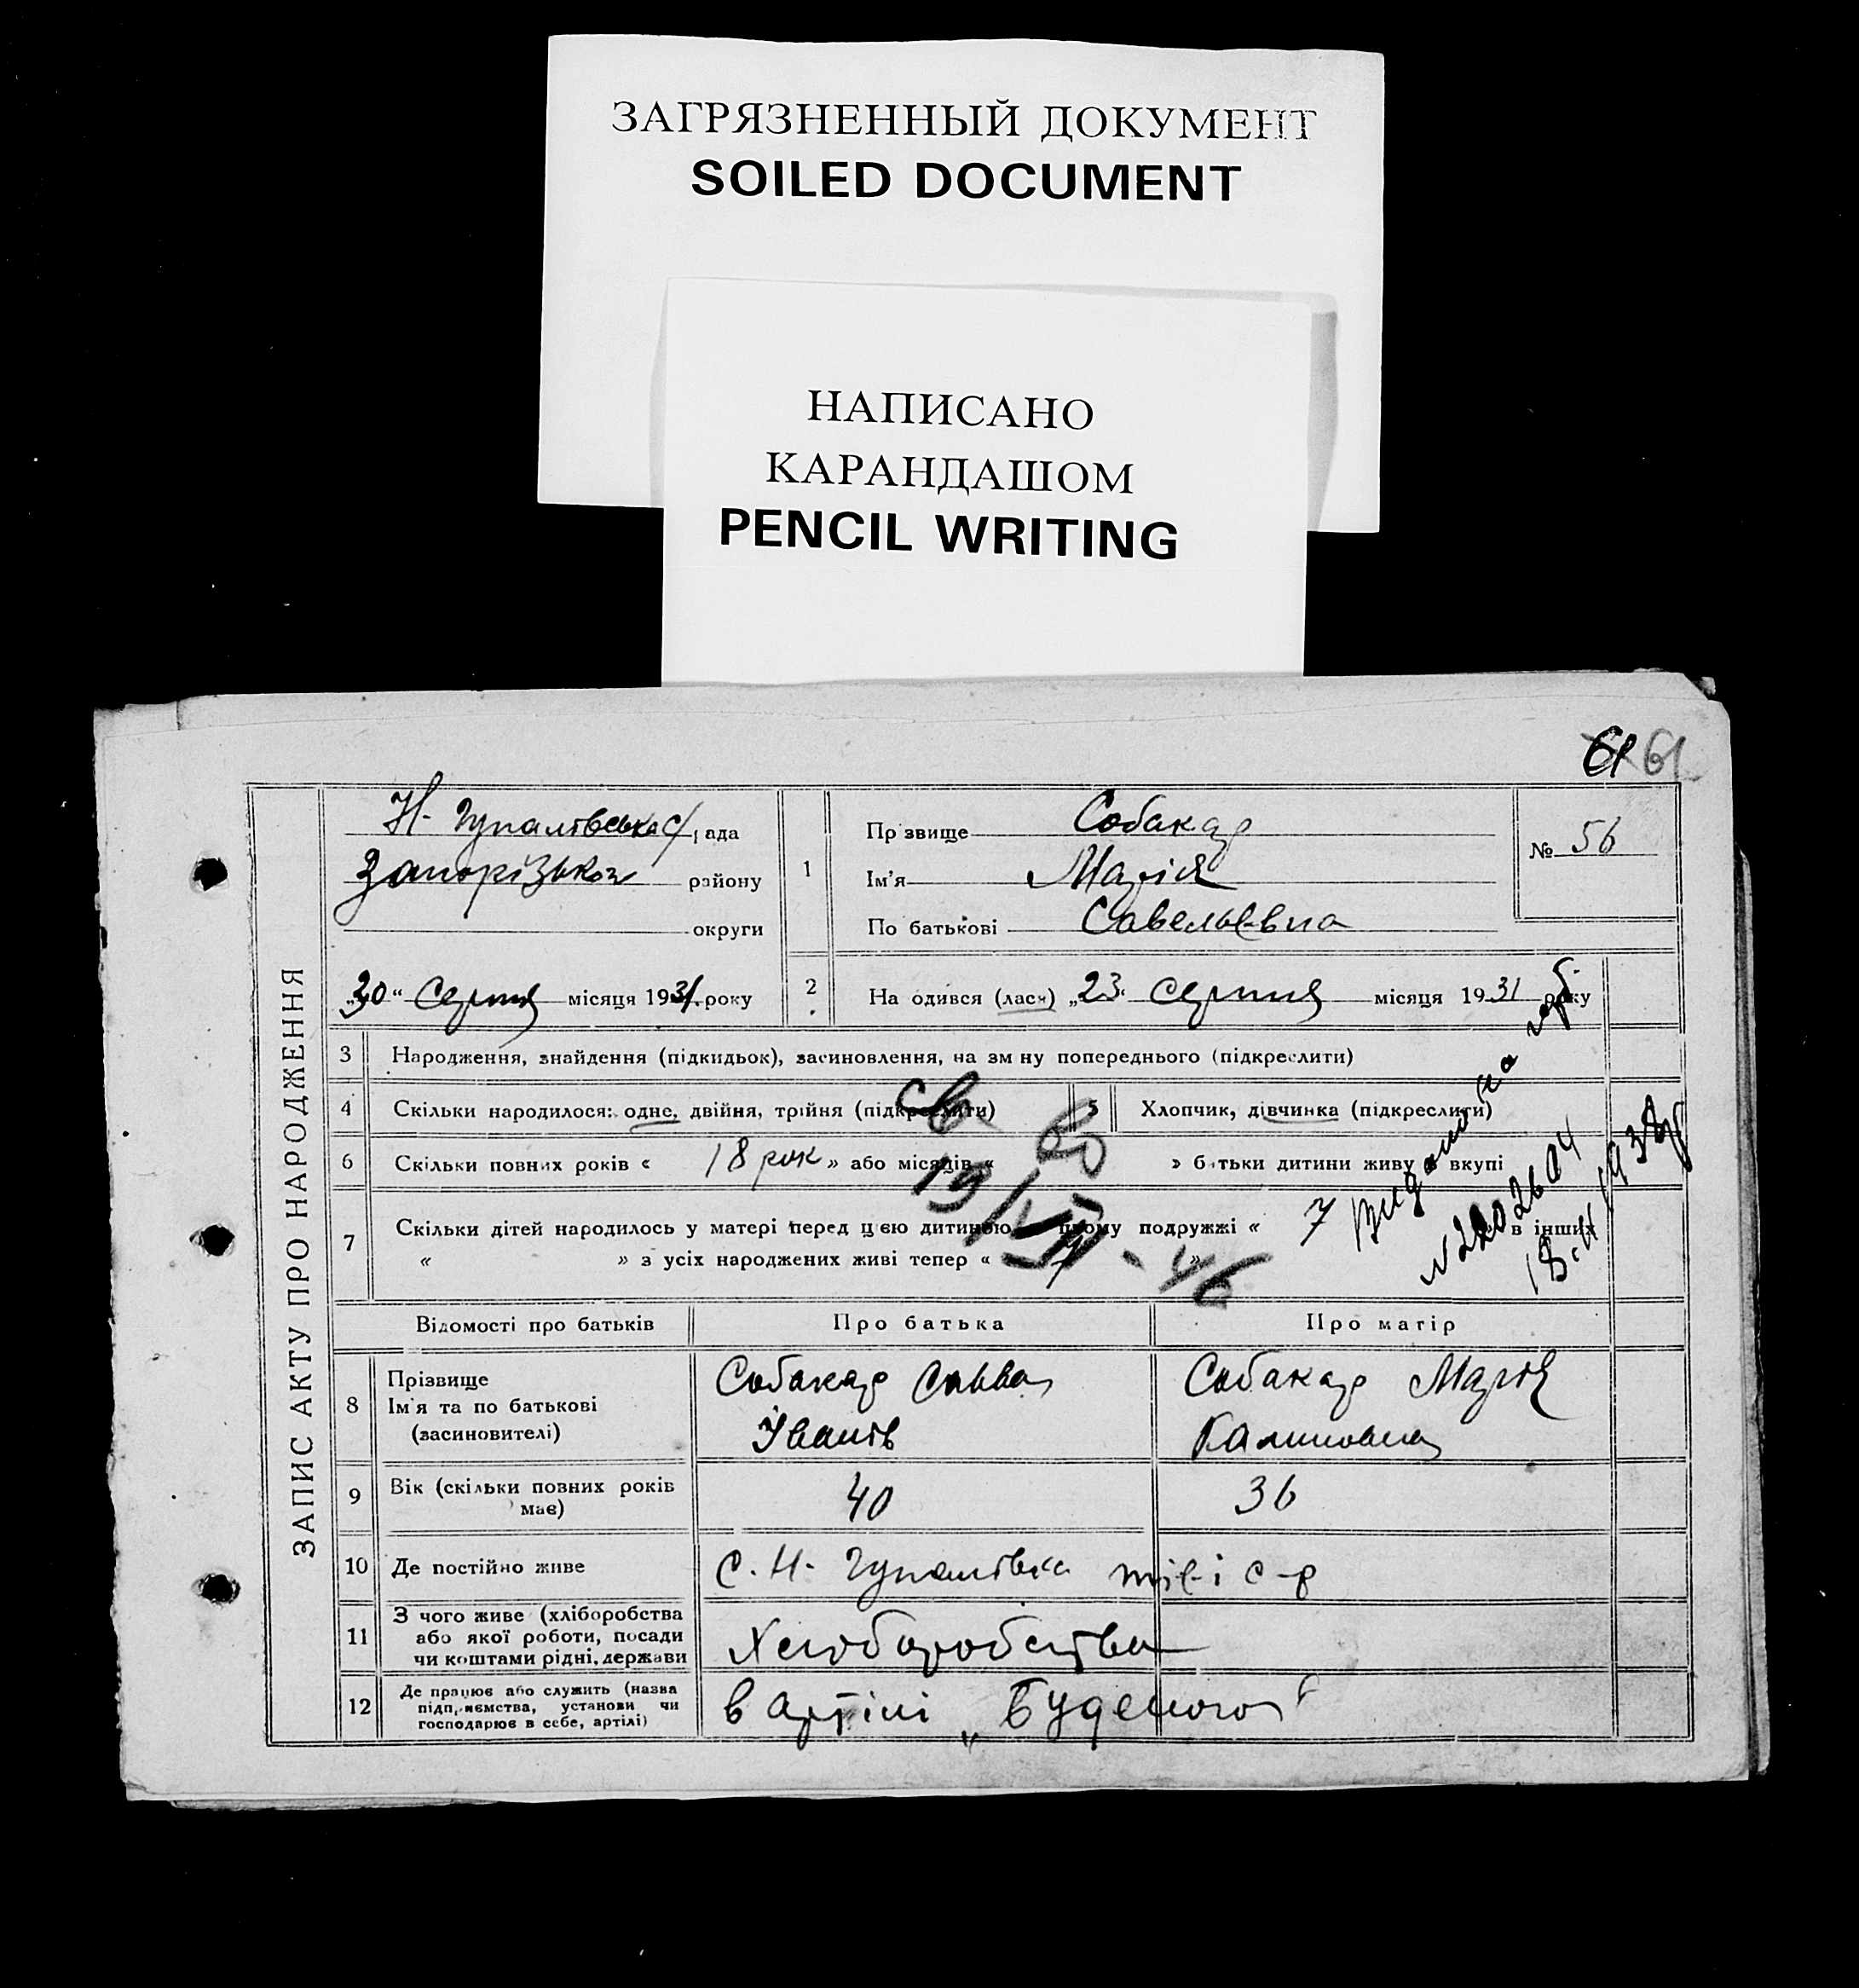 ЗАГРЯЗНЕННЫЙ ДОКУМЕНТ
SOILED DOCUMENT
НАПИСАНО
КАРАНДАШОМ
PENCIL WRITING
61 61
ЗАПИС АКТУ ПРО НАРОДЖЕННЯ
Н-Гупалівська с/рада
Запорізьком району
округи
„30“ Серпня місяця 1931 року
1
Прізвище Собакар
Ім'я Марія
По батькові Савельевна
№ 56
2
На одився (лася) „23“ серпня місяця 1931 року
3 Народження, знайдення (підкидьок), засиновлення, на зм ну попереднього (підкреслити)
4 Скільки народилося: одне, двійня, трійня (підкреслити)
5 Хлопчик, дівчинка (підкреслити)
6 Скільки повних років « 18 рок » або місяців « » батьки дитини живуть вкупі
7 Скільки дітей народилось у матері перед цією дитиною в цьому подружжі « 7 в інших
« » з усіх народжених живі тепер « 7 »
св во
19/VII-46
Видано на
№ 2202604
Відомості про батьків
Про батька
Про матір
8 Прізвище
Ім'я та по батькові
(засиновителі)
Собакар Савва
Іванів
Собакар Марія
Калиновна
9 Вік (скільки повних років
має)
40
36
10 Де постійно живе
с. Н-Гупалівка тієї с-р
11 З чого живе (хліборобства
або якої роботи, посади
чи коштами рідні, держави
Хліборобства
12 Де працює або служить (назва
підприємства, установи чи
господарює в себе, артілі)
в артілі „Буденого“